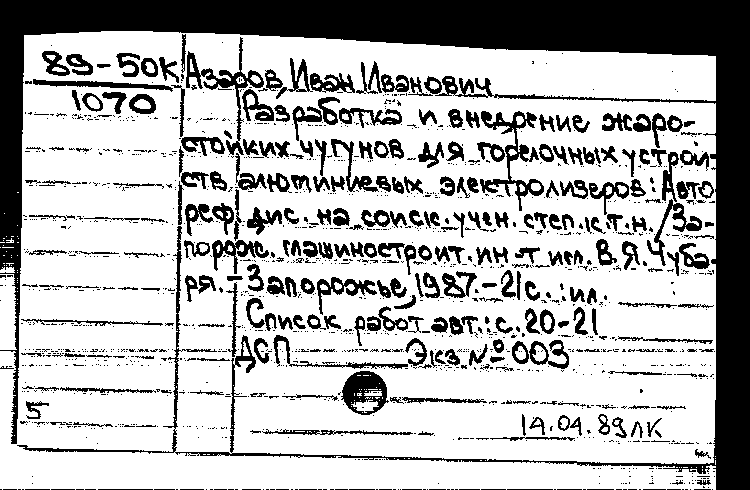 89-50К Азаров, Иван Иванович
1070 Разработка и внедрение жаро-
стойких чугунов для горелочных устрой-
ств алюминиевых электролизеров: Авто
реф. дис. на соиск. учен. степ. к.т.н. / За-
порож. машиностроит. ин-т им. В.Я. Чуба-
ря. - Запорожье, 1987. - 21 с. : ил.
Список работ авт.: с. 20-21
ДСП Экз № 003
5
14.04.89 ЛК